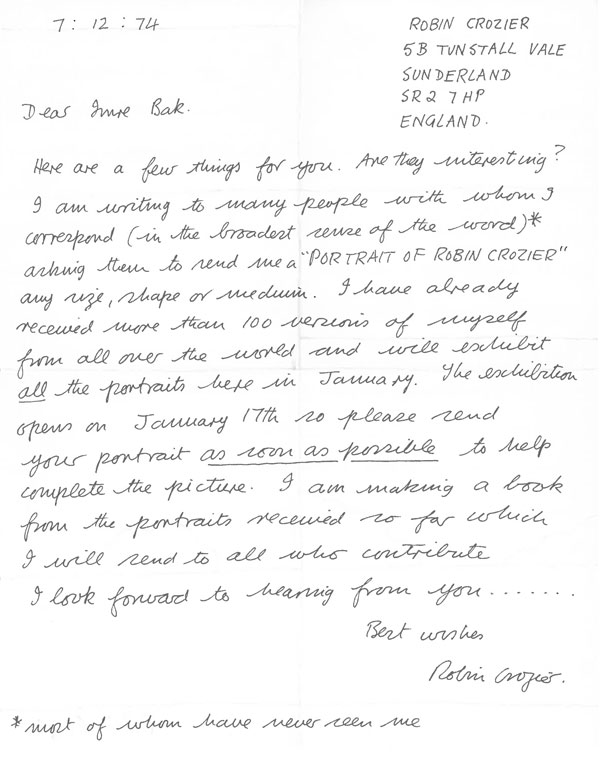 7 : 12 : 74
ROBIN CROZIER
5B TUNSTALL VALE
SUNDERLAND
SR2 7HP
ENGLAND.
Dear Imre Bak.
Here are a few things for you. Are they interesting?
I am writing to many people with whom I
correspond (in the broadest sense of the word)*
asking them to send me a "PORTRAIT OF ROBIN CROZIER"
any size, shape or medium. I have already
received more than 100 versions of myself
from all over the world and will exhibit
all the portraits here in January. The exhibition
opens on January 17th so please send
your portrait as soon as possible to help
complete the picture. I am making a book
from the portraits received so far which
I will send to all who contribute
I look forward to hearing from you.......
Best wishes
Robin Crozier.
*most of whom have never seen me